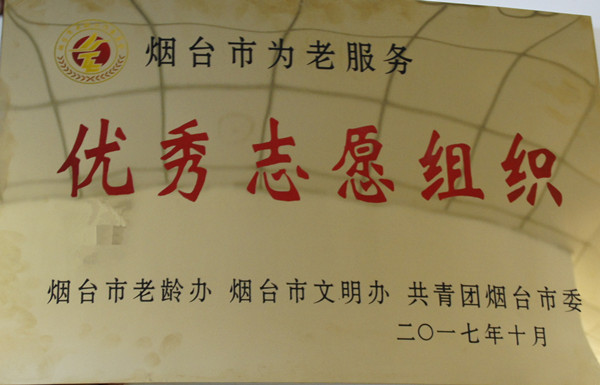 烟台市为老服务
优秀志愿组织
烟台市老龄办 烟台市文明办 共青团烟台市委
二〇一七年十月